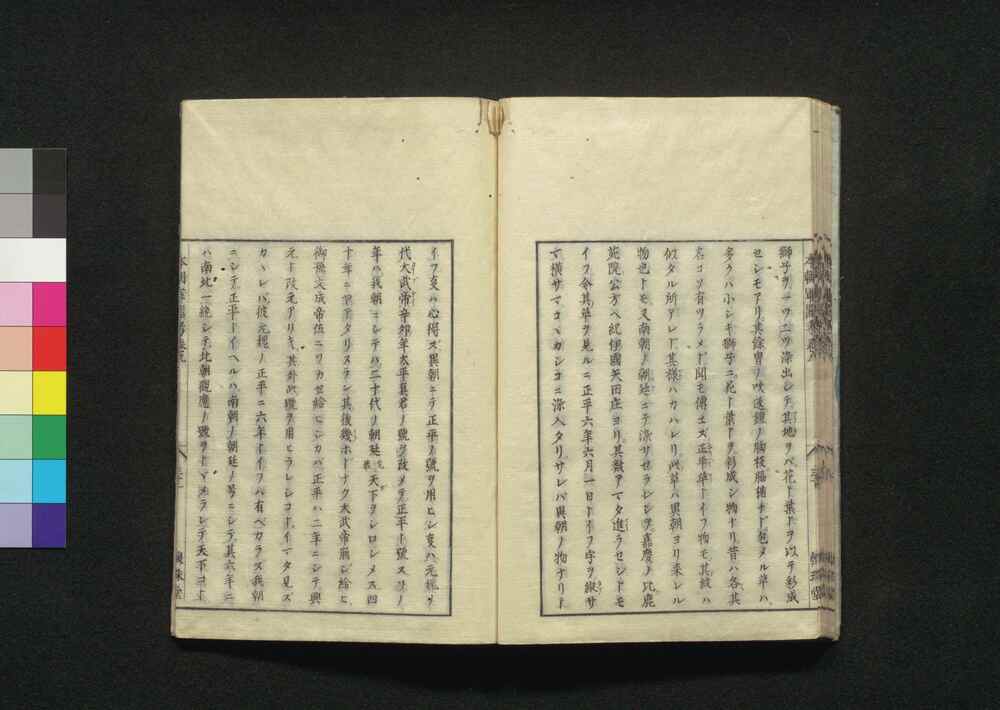 獅子ヲ一ツ二ツ染出シテ其地ヲバ花ト葉トヲ以テ彩成
セシモアリ其餘冑ノ吹返鎧ノ胸板脇楯ナド包メル革ハ
多クハ小シキ獅子ニ花ト葉トヲ彩成シ物ナリ昔ハ各其
名コソ有ツラメド聞モ傳エズ正平革トイフ物モ其紋ハ
似タル所アレド其様ハカハレリ此革ハ異朝ヨリ来レル
物也トモ又南朝ノ朝廷ニテ染サセラレシヲ嘉慶ノ比鹿
苑院公方ヘ紀伊國矢田庄ヨリ其数アマタ進ラセシトモ
イフ今其革ヲ見ルニ正平六年六月一日トイフ字ヲ縦サ
マ横サマコヽカシコニ染入タリサレバ異朝ノ物ナリト
イフ㕝ハ心得ズ異朝ニテ正平ノ號ヲ用ヒシ㕝ハ元魏ノ
代太武帝辛卯年太平真君ノ號ヲ改メテ正平ト號ス
年ハ我朝ニシテハ二十代ノ朝廷天下ヲシロシメス四
十年ニ當タリヌラン其後幾ホドナク太武帝崩ジ給ヒ
御孫文成帝位ニツカセ給ヒシカバ正平ハ二年ニシテ興
元ト改元アリキ其外此號ヲ用ヒラレシコト、イマタ見ズ
カヽレバ彼元魏ノ正平ニ六年トイフハ有ベカラズ我朝
ニシテ正平トイヘルハ南朝ノ朝廷ノ号ニシテ其六年ニ
ハ南北一統シテ北朝觀應ノ號ヲトヾメラレテ天下コト